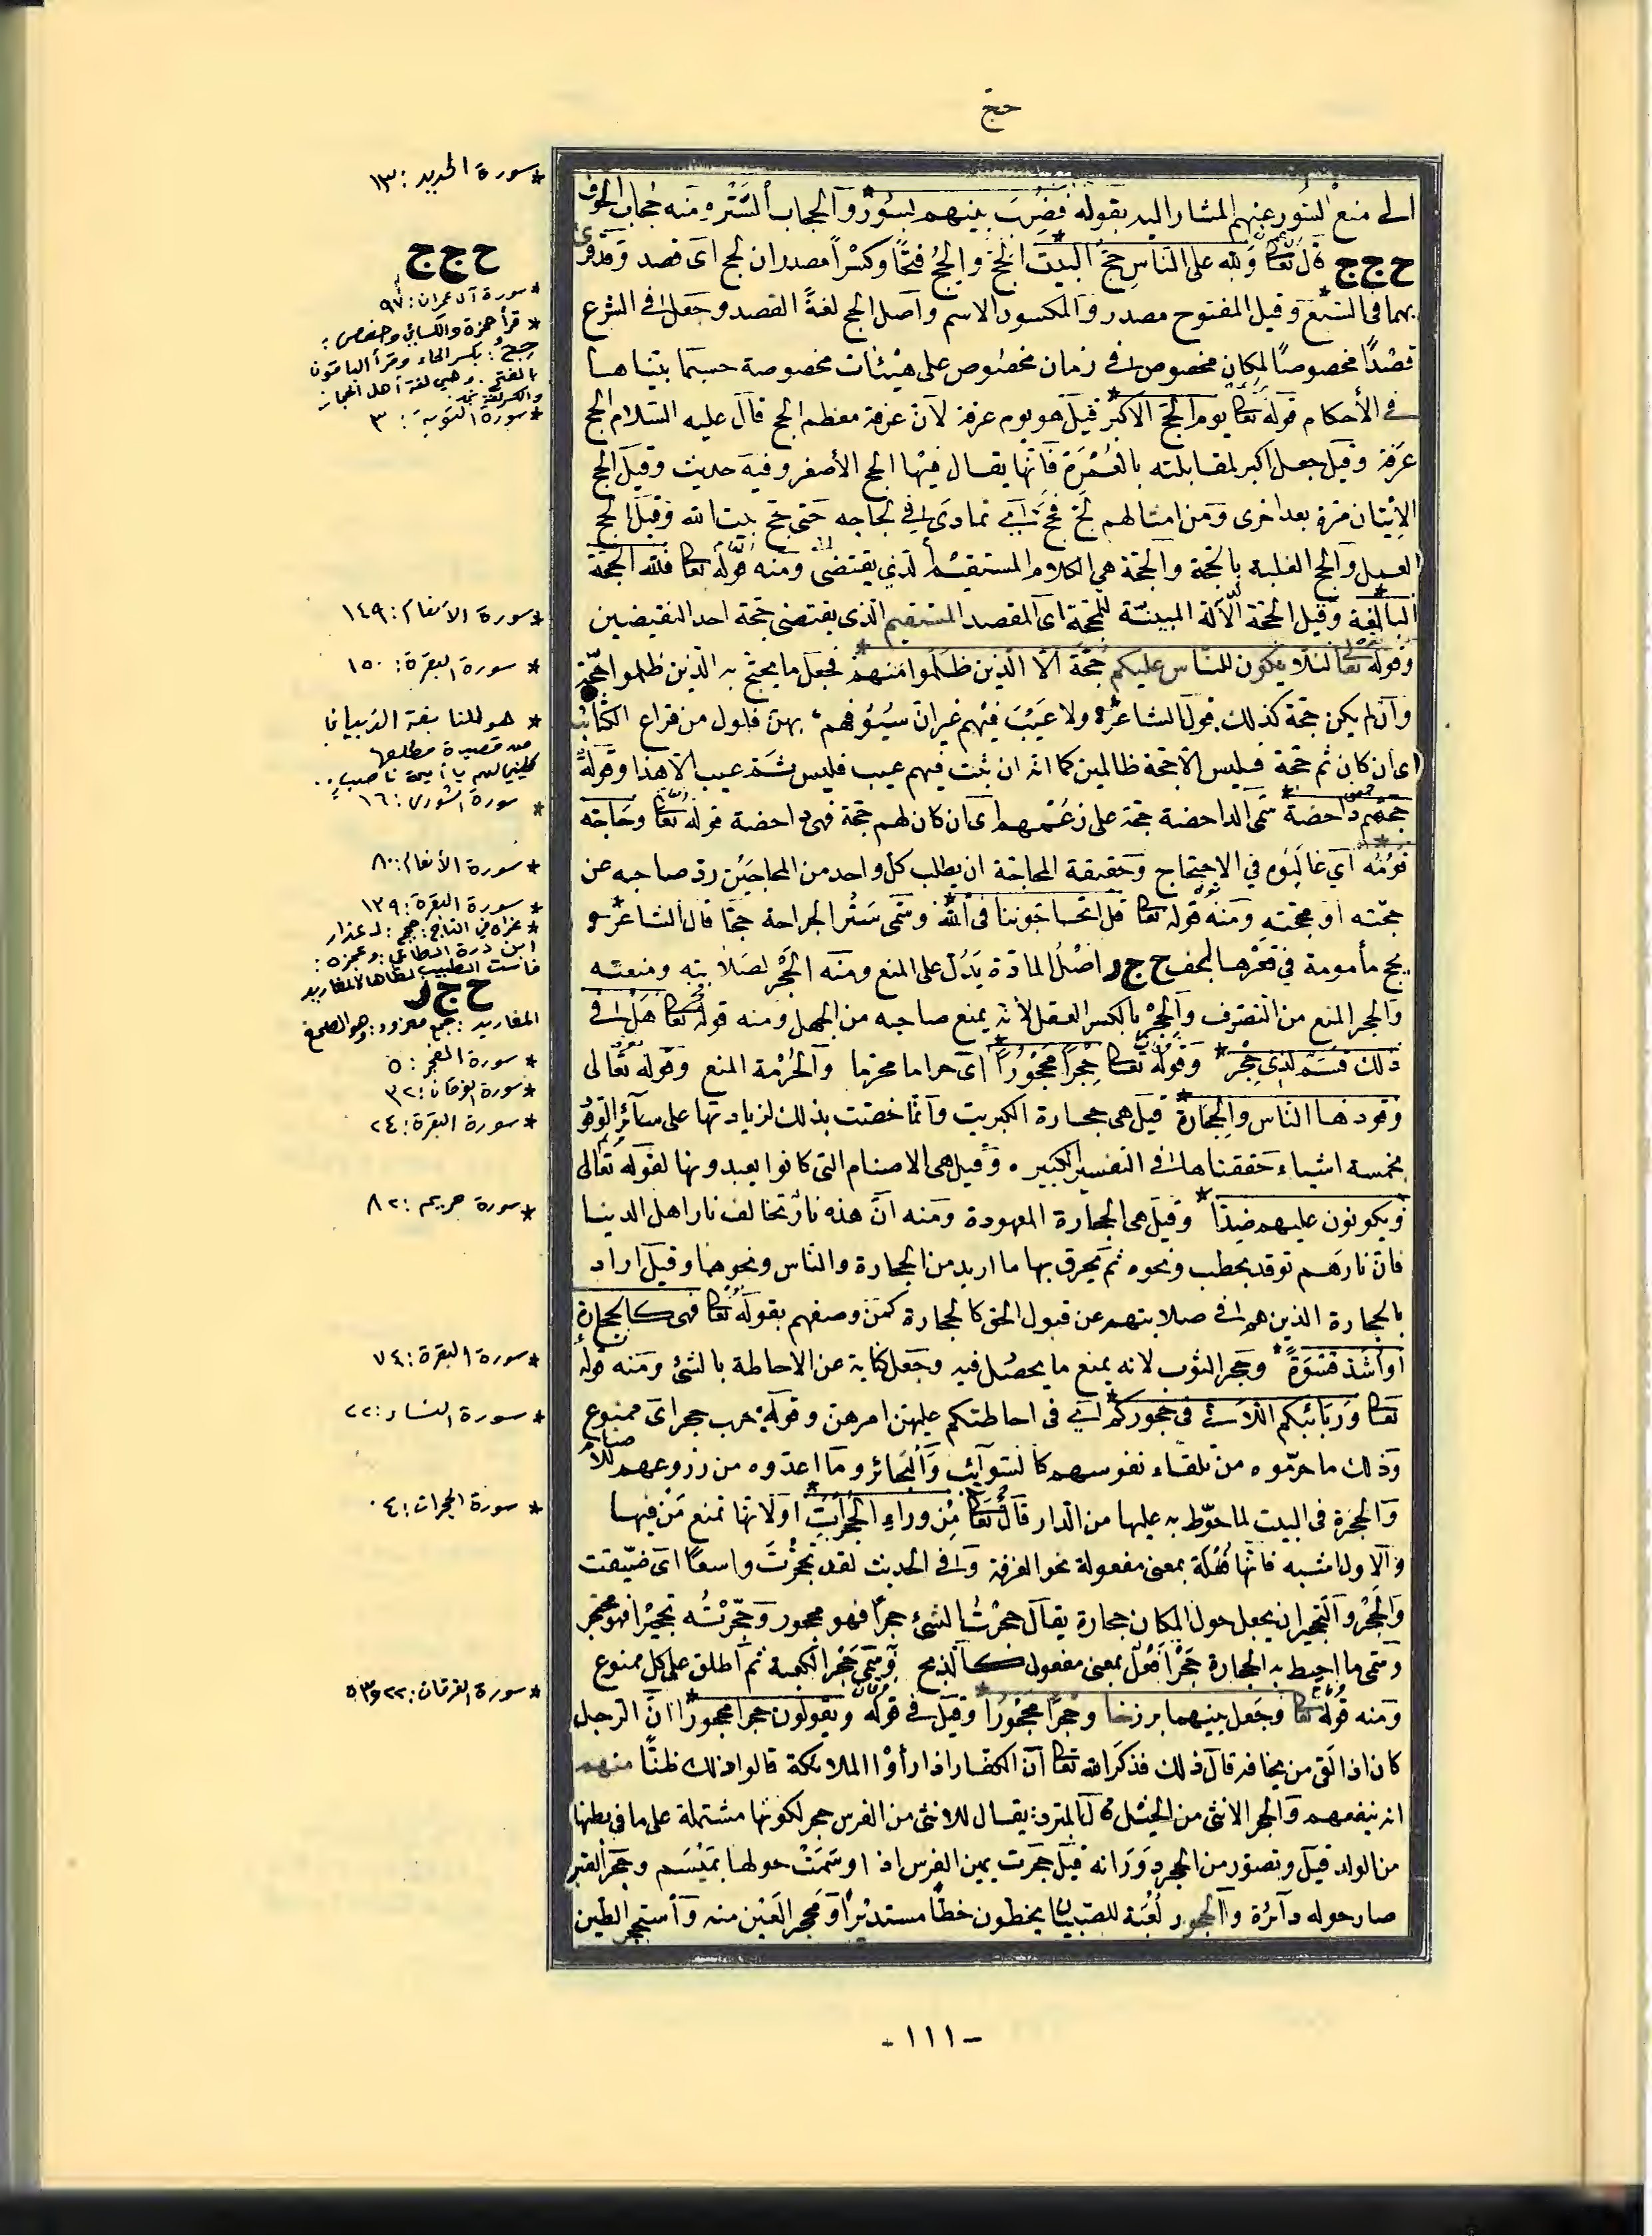 حج
الى منع النور عنهم المشار اليه بقوله فَضُرِبَ بينهم بسُورٌ وآلحجاب ألسَتْره منه حجاب الجوف
ح ج ج قال تعا ولله على الناسِ حِجّ البيت الحجّ والحِجّ فتحًا وكسْراً مصدران لحج اى قصد وقد قرئ
بهما فى السَّبْع وقيل المفتوح مصدر والمكسور الاسم واصل الحج لغةً القصد وجعل فى الشرع
قصْدًا مخصوصًا لمكان مخصوص فى زمان مخصُوص على هيْئات مخصوصة حسبما بيّناها
فى الأحكام قوله تعا يوم الحجّ الاكبر قيل هو يوم عرفة لآن عرفة معظم الحج قال عليه السّلام الحج
عرفة وقيل جعل اكبر لمقابلته بالعُمْرَة فانّها يقال فيْها الحج الأصغر وفيه حديث وقيل الحج
الاِتْيان مَرةٍ بعد اخرى ومن امثالهم لَجّ فحَجّ اى تمادَى فى لجاجه حتى حَجّ بيت الله وقيل الحج
والحج الغلبة بالحجة والحجة هى الكلام المستقيْم ألذي يقتضى ومنه قوله تعا فلله الحجّة
البالغة وقيل الحجّة الآلة المبينّة للمحَجّة اى المقصد المستقيم الّذى يقتضى حجّة احد النقيضين
وقوله تعا لئلّا يكون للناس عليكم حُجّةٌ الا الّذين ظلَموا منهم فجعل ما يحتجّ به الّذين ظلموا حجّة
وآن لم يكن حجة كذلك قول الشاعر ولا عَيْبَ فيْهم غير انّ سُيُوفهم بهن فلول من قراع الكتائب
اى ان كان ثَم حجّة فليس الّا حجّة ظالمين كما انه ان ثبت فيهم عيب فليس ثمّ عيب الا هذا وقوله
حجتهم داحضة سمّى الداحضة حجّة على زعْمهم اى ان كان لهم حجّة فهى داحضة قوله تعا وحَاجّه
قومُه اي غَالَبُوه في الاحتجاج وحَقيقة المحاجّة ان يطلب كل واحد من المحاجَيْن ردّ صاحبه عن
حجّته او محجّته ومنه قوله تعا قل اتحاجّوننا فى الله وسَمّى سَبْر الجراحة حَجًّا قال الشاعر
يحج مأمومة في قعْرها لجف ح ج ر اصْل المادّة يَدُلّ على المنع ومنه الحَجَر لصَلابته ومنعته
وآلحجر المنع من التصَرف والحِجْر بالكسر العقل لأنه يمنع صاحبه من الجهل ومنه قوله تعا هَلْ فى
ذلك قسَم لذى حِجْر وقوله تعا حِجْراً محْجُوراً اى حراما محرّما والحُرْمة المنع وقوله تعالى
وقودها الناس والحِجَارة قيل هى حجارة الكبريت وآنّما خصّت بذلك لزيادتها على سآئر الوقود
بخمسة اشياء حقّقناها فى التفسير الكبير وقيل هى الاصنام التى كانوا يعبدونها لقوله تعالى
ويكونون عليهم ضِدّا وقيل هى الحجارة المعهودة ومنه آنّ هذه نارٌ تخالف نار اهل الدنيا
فان نارَهم توقد بحطب ونحوه ثم يحرق بها ما اريد من الحجارة والناس ونحوهما وقيل اراد
بالحجارة الذين هم فى صلابتهم عن قبول الحق كالحجارة كمَن وصفهم بقوله تعا فهى كالحجارة
أو أشَدّ قَسْوَةً وحَجر الثوب لانه يمنع ما يحصُل فيه وجعل كناية عن الاحاطة بالشئ ومنه قوله
تعا وَرَبَآئبكم اللّاتى فى حجوركم اى فى احاطتكم عليهنّ امرهن وقوله حرث حجر اى ممنوع
وذلك ما حرّموه من تلقاء نفوسهم كالسّوآئب والبَحائر ومآ اعدّوه من زرُوعهم للأصنام
وَآلحجرَة فى البيت لما حوّط به عليها من الّدار قال تعا مِنْ وراءِ الحُجُراتِ اولانّها تمنع مَن فيها
وآلاول اشبه فانّها فُعْلة بمعنى مفعولة نحو الغرفة وفى الحديث لقد تحجّرتَ واسعًا اى ضيّقت
والحَجْر والتّحجير ان يجعل حول المكان حجارة يقال حجرْتُ الشئ حجراً فهو محجور وحَجّرْتُه تحجيْراً فهو محجّر
وسمّى ما احيط به الحجارة حَجْراً فِعْل بمعنى مفعول كالّذبح وسُمّى حَجْر الكعبة ثم أطلق على كل ممنوع
ومنه قوله تعا وجعل بينهما برزخا وحِجْراً محْجُوراً وقيل فى قوله ويقولون حجرا محجوراً انّ الرجل
كان اذا لقى من يخافه قال ذلك فذكرَ الله تعا آنّ الكفار اذا رأوْا الملائكة قالوا ذلك ظنًّا منهم
انه ينفعهم وآلحجر الانثى من الخيْل قال المبرد: يقال للانثى من الفرس حجر لكونها مشتملة على ما فى بطنها
من الولد قيل وتصوّر من الحجر دَوَرَانه قيل حجرت عين الفرس اذا وسَمَتْ حولها بميْسَم وحجّر القمر
صار حوله دآئرة والحجور لُعْبَة للصّبيان يخطون خطًّا مستديْراً وَمَحجر العَيْن منه وأستحجر الطين
* سورة الحديد : ١٣
ح ج ج
* سورة آل عمران : ٩٧
* قرأ حمزة والكسائي وحفص :
حِجُّ : بكسر الحاء وقرأ الباقون
بالفتح . وهي لغة أهل الحجاز
والكسر لغة نجد
* سورة التوبة : ٣
* سورة الأنعام : ١٤٩
* سورة البقرة : ١٥٠
* هو للنابغة الذبياني
من قصيدة مطلعها
كليني لهم يا أميمة ناصب ..
* سورة الشورى : ١٦
* سورة الأنعام : ٨٠
* سورة البقرة : ١٣٩
* عزاه في التاج : حجج : لـ عذار
ابن درة الطائي : وعجزه :
فاست الطبيب قذاها كالمغاريد
ح ج ر
المغاريد : جمع مغرود : وهو الصمغ
* سورة الفجر : ٥
* سورة الفرقان : ٢٢
* سورة البقرة : ٢٤
* سورة مريم : ٨٢
* سورة البقرة : ٧٤
* سورة النساء : ٢٣
* سورة الحجرات : ٠٤
* سورة الفرقان : ٢٢ و ٥٣
- ١١١ -